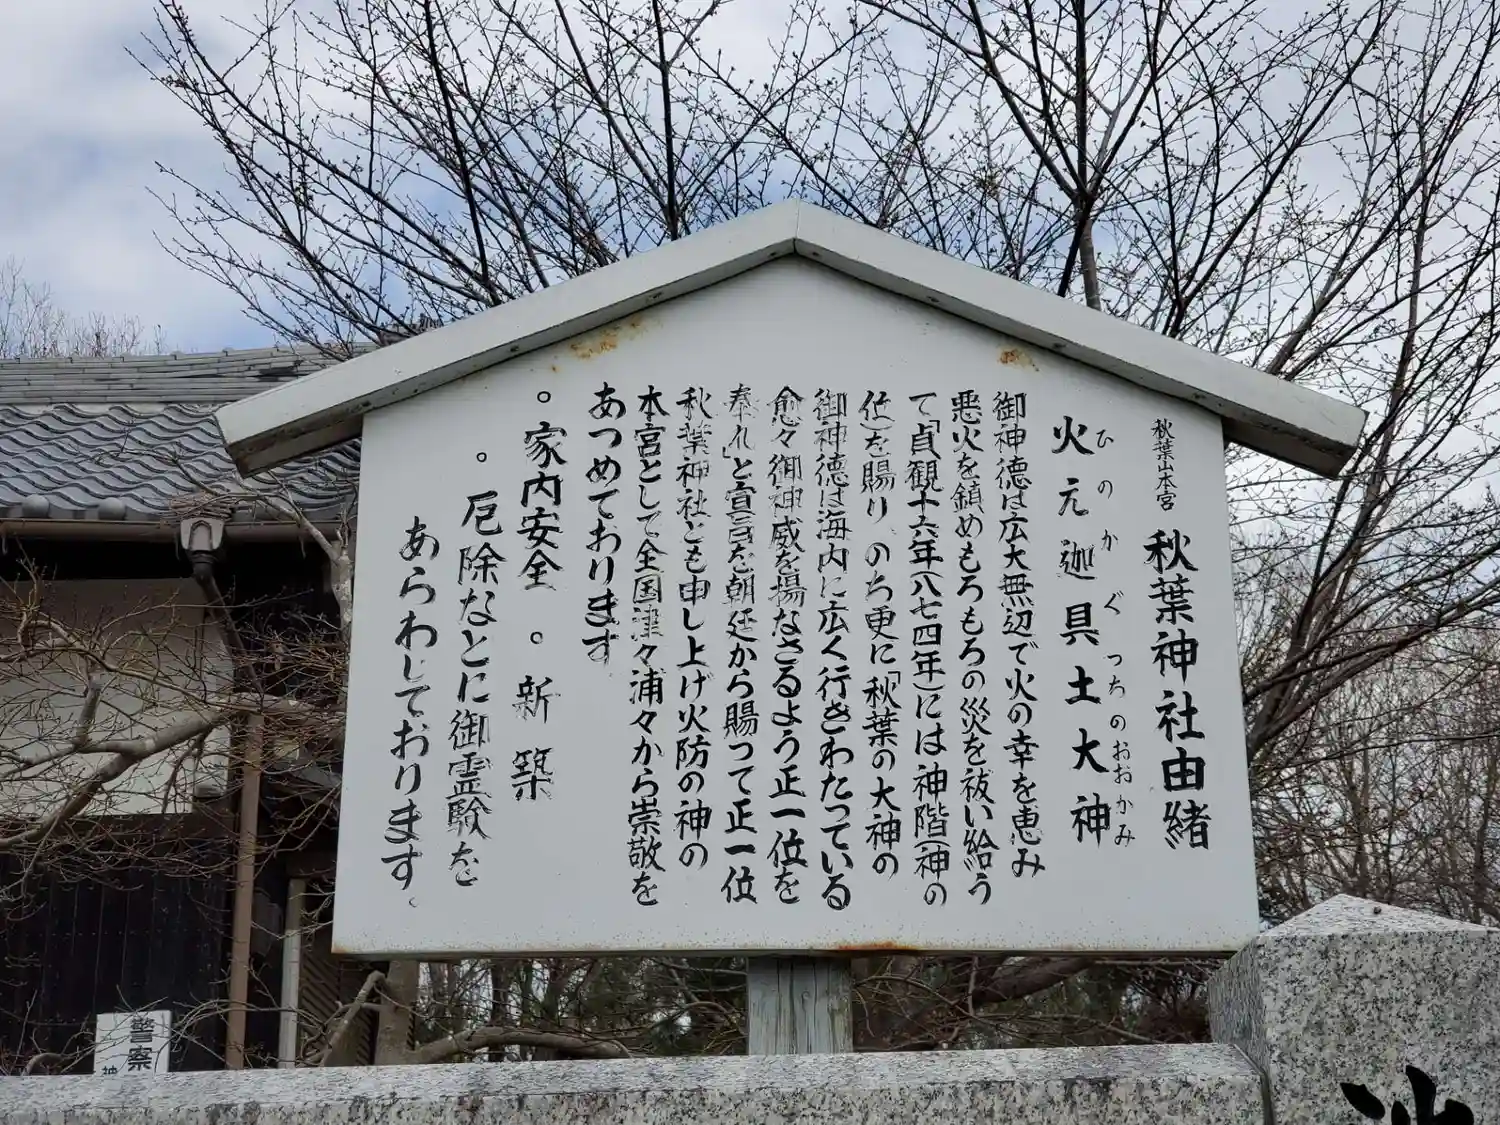 秋葉山本宮 秋葉神社由緒
ひのかぐつちのおおかみ
火元迦具土大神
御神徳は広大無辺で火の幸を恵み
悪火を鎮めもろもろの災を祓い給う
て「貞観十六年(八七四年)には神階(神の
位)を賜り のち更に「秋葉の大神の
御神徳は海内に広く行きわたっている
愈々御神威を揚なさるよう正一位を
奉れ」と宣旨を朝廷から賜って正一位
秋葉神社とも申し上げ火防の神の
本宮として全国津々浦々から崇敬を
あつめております
。家内安全 。新築
。厄除などに御霊験を
あらわしております。
警察